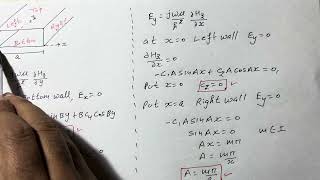 Top
Left
Right
Bottom
→ x
a
jωμ ∂Hz
∂y
Bottom wall, Ex=0
sin By + BC4 Cos By
Ey = jωμ ∂Hz
∂x
at x=0 Left wall Ey=0
∂Hz = 0
∂x
-C1 A sin Ax + C2 A cos Ax = 0
Put x=0 C2=0
Put x=a Right wall Ey=0
-C1 A sin Ax = 0
sin Ax = 0 m∈I
Ax = mπ
A = mπ
A = mπ